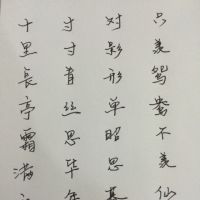 十里長亭霜满
寸寸青丝思华年
对影形单昭思
只羡鸳鸯不羡仙